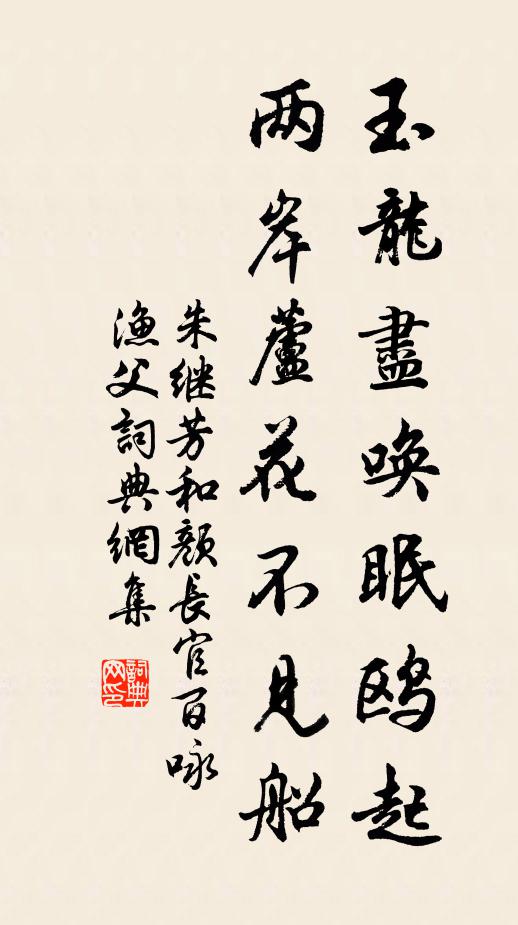 玉龍盡唤眠鸥起
两岸蘆花不見船
朱继芳和颜長官百咏
漁父詞典網集
詞典网印